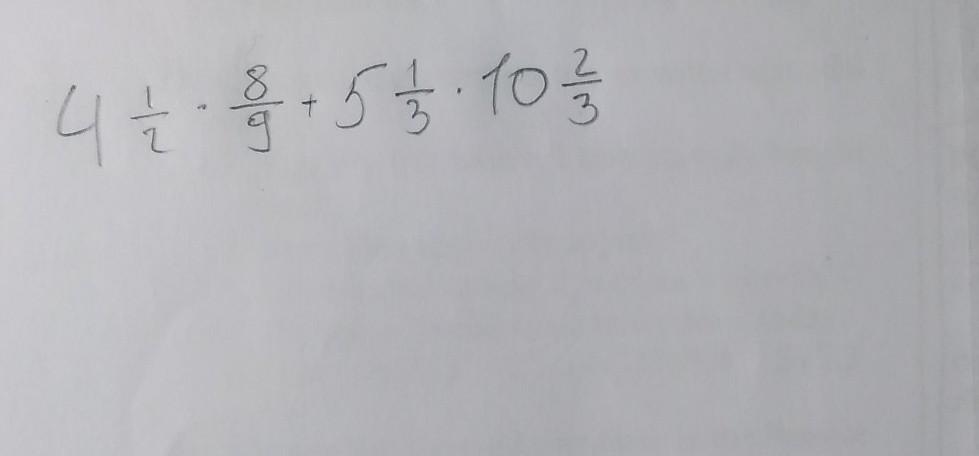 4 1/2 · 8/9 + 5 1/3 · 10 2/3